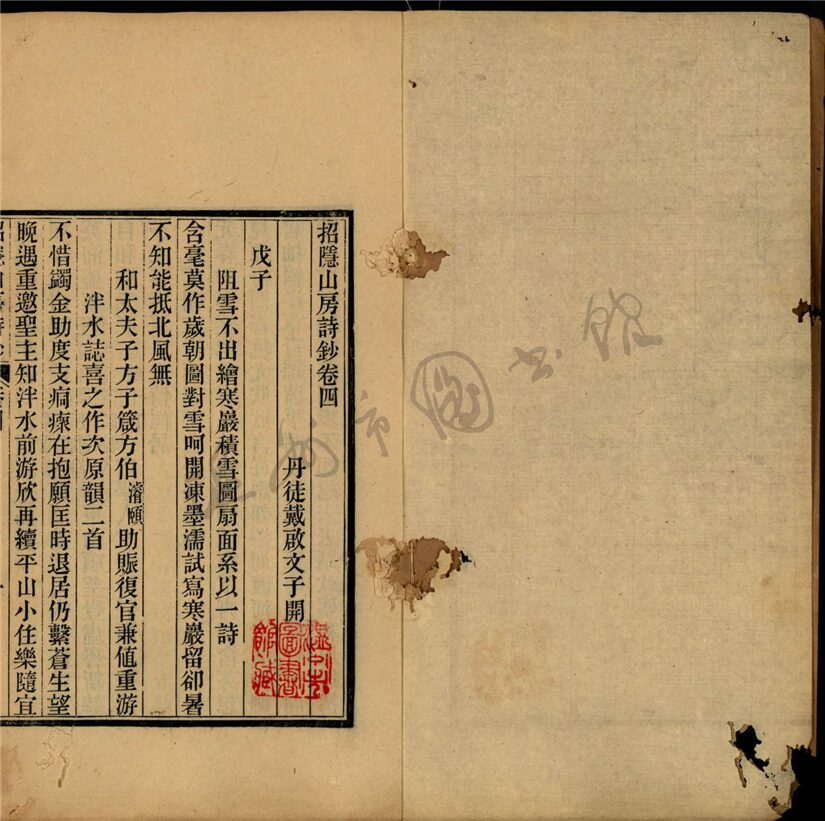 招隱山房詩鈔卷四
丹徒戴啟文子開
戊子
阻雪不出繪寒巖積雪圖扇面系以一詩
含毫莫作歲朝圖對雪呵開凍墨濡試寫寒巖留卻暑
不知能抵北風無
和太夫子方子箴方伯濬頤助賑復官兼値重游
泮水誌喜之作次原韻二首
不惜蠲金助度支痌瘝在抱願匡時退居仍繫蒼生望
晚遇重邀聖主知泮水前游欣再續平山小住樂隨宜
溫州市圖書館藏
溫州市圖书舘